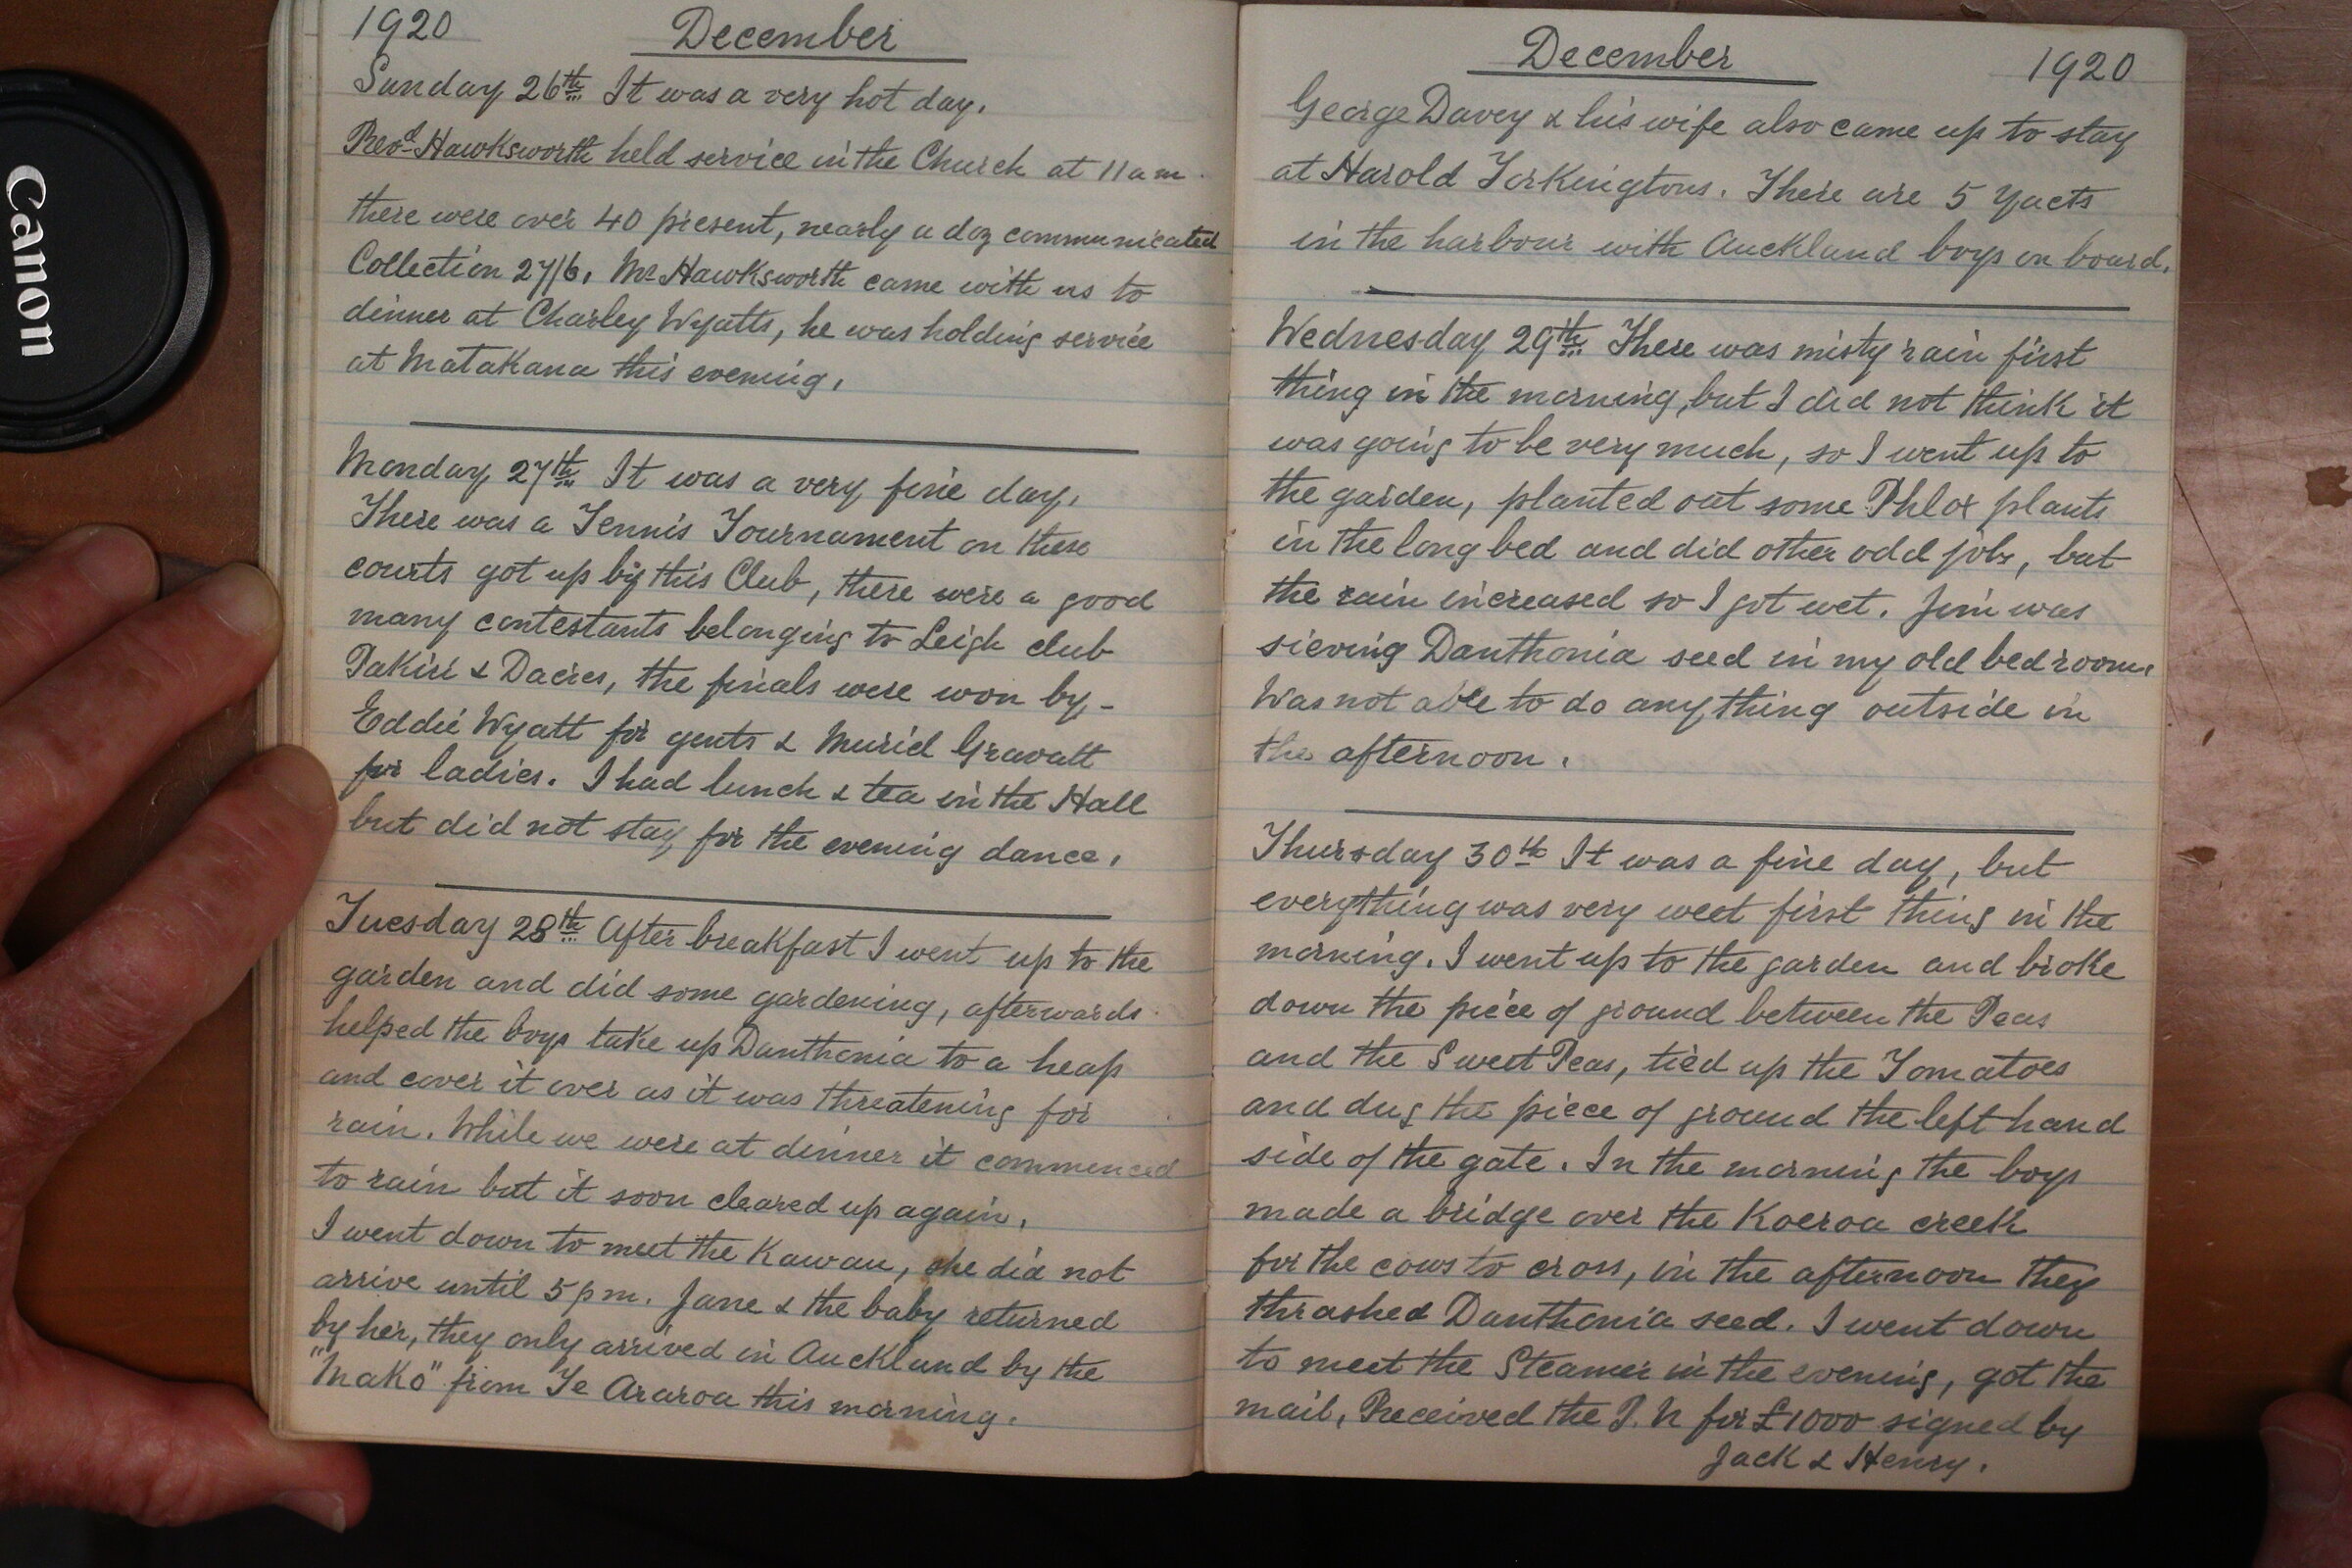 Canon
1920 December
Sunday 26th It was a very hot day.
Revd Hawksworth held service in the Church at 11 am.
there were over 40 present, nearly a doz communicated
Collection 27/6. Mr Hawksworth came with us to
dinner at Charley Wyatts, he was holding service
at Matakana this evening.
Monday 27th It was a very fine day.
There was a Tennis Tournament on these
courts got up by this Club, there were a good
many contestants belonging to Leigh club
Pakiri & Dacres, the finals were won by -
Eddie Wyatt for gents & Muriel Gravatt
for ladies. I had lunch & tea in the Hall
but did not stay for the evening dance.
Tuesday 28th After breakfast I went up to the
garden and did some gardening, afterwards
helped the boys take up Danthonia to a heap
and cover it over as it was threatening for
rain. While we were at dinner it commenced
to rain but it soon cleared up again.
I went down to meet the Kawau, she did not
arrive until 5 pm. Jane & the baby returned
by her, they only arrived in Auckland by the
"Mako" from Te Araroa this morning.
December 1920
George Davey & his wife also came up to stay
at Harold Torkingtons. There are 5 Yacts
in the harbour with Auckland boys on board.
Wednesday 29th There was misty rain first
thing in the morning, but I did not think it
was going to be very much, so I went up to
the garden, planted out some Phlox plants
in the long bed and did other odd jobs, but
the rain increased so I got wet. Jim was
sieving Danthonia seed in my old bedroom.
Was not able to do anything outside in
the afternoon.
Thursday 30th It was a fine day, but
everything was very weet first thing in the
morning. I went up to the garden and broke
down the piece of ground between the Peas
and the Sweet Peas, tied up the Tomatoes
and dug the piece of ground the left hand
side of the gate. In the morning the boys
made a bridge over the Koeroa creek
for the cows to cross, in the afternoon they
thrashed Danthonia seed. I went down
to meet the Steamer in the evening, got the
mail, Received the P. N for £1000 signed by
Jack & Henry.